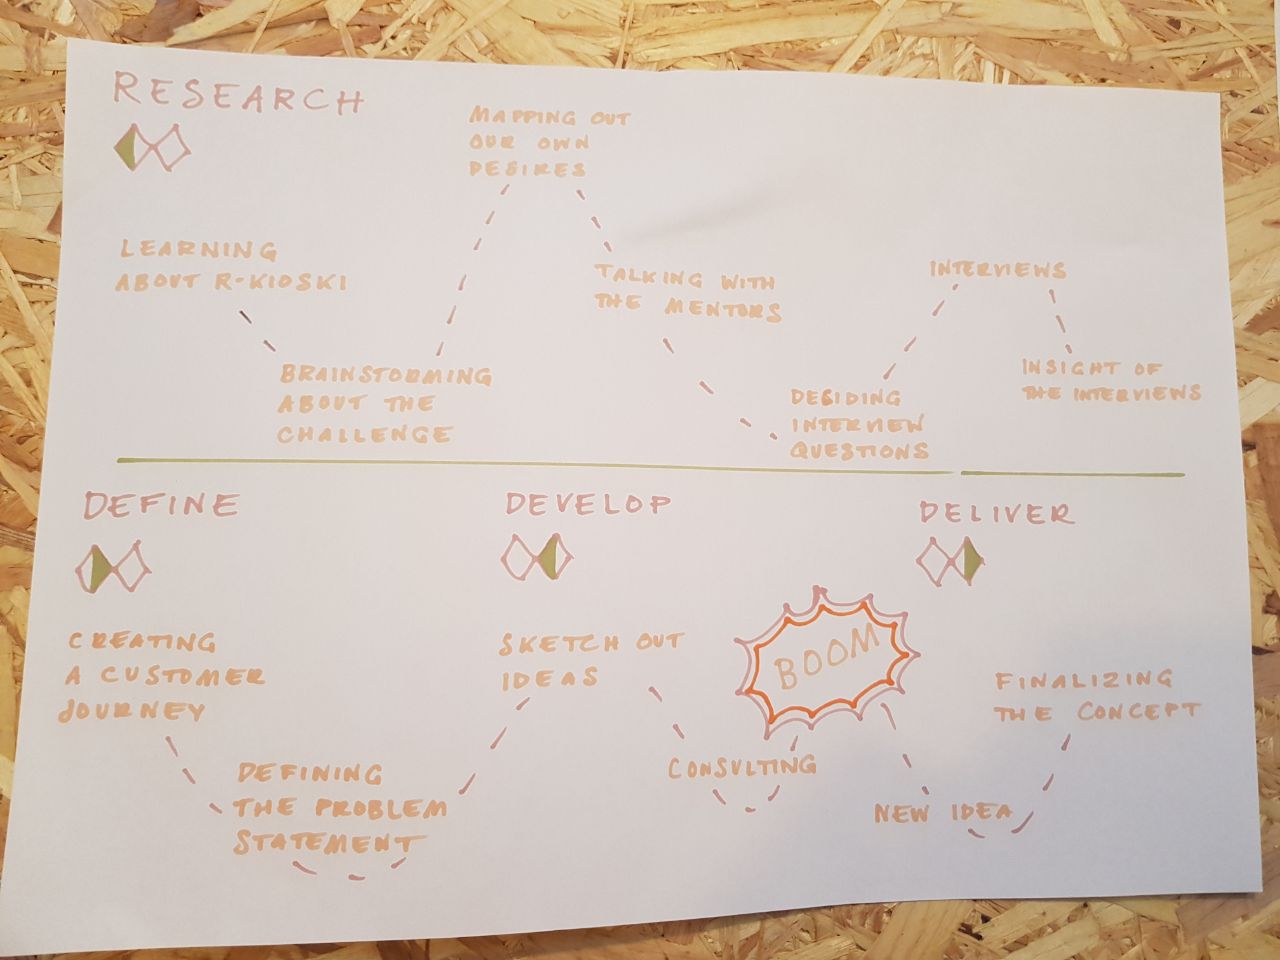 RESEARCH
MAPPING OUT
OUR OWN
DESIRES
LEARNING
ABOUT R-KIOSKI
TALKING WITH
THE MENTORS
INTERVIEWS
BRAINSTORMING
ABOUT THE
CHALLENGE
DESIDING
INTERVIEW
QUESTIONS
INSIGHT OF
THE INTERVIEWS
DEFINE
CREATING
A CUSTOMER
JOURNEY
DEFINING
THE PROBLEM
STATEMENT
DEVELOP
SKETCH OUT
IDEAS
CONSULTING
BOOM
DELIVER
NEW IDEA
FINALIZING
THE CONCEPT